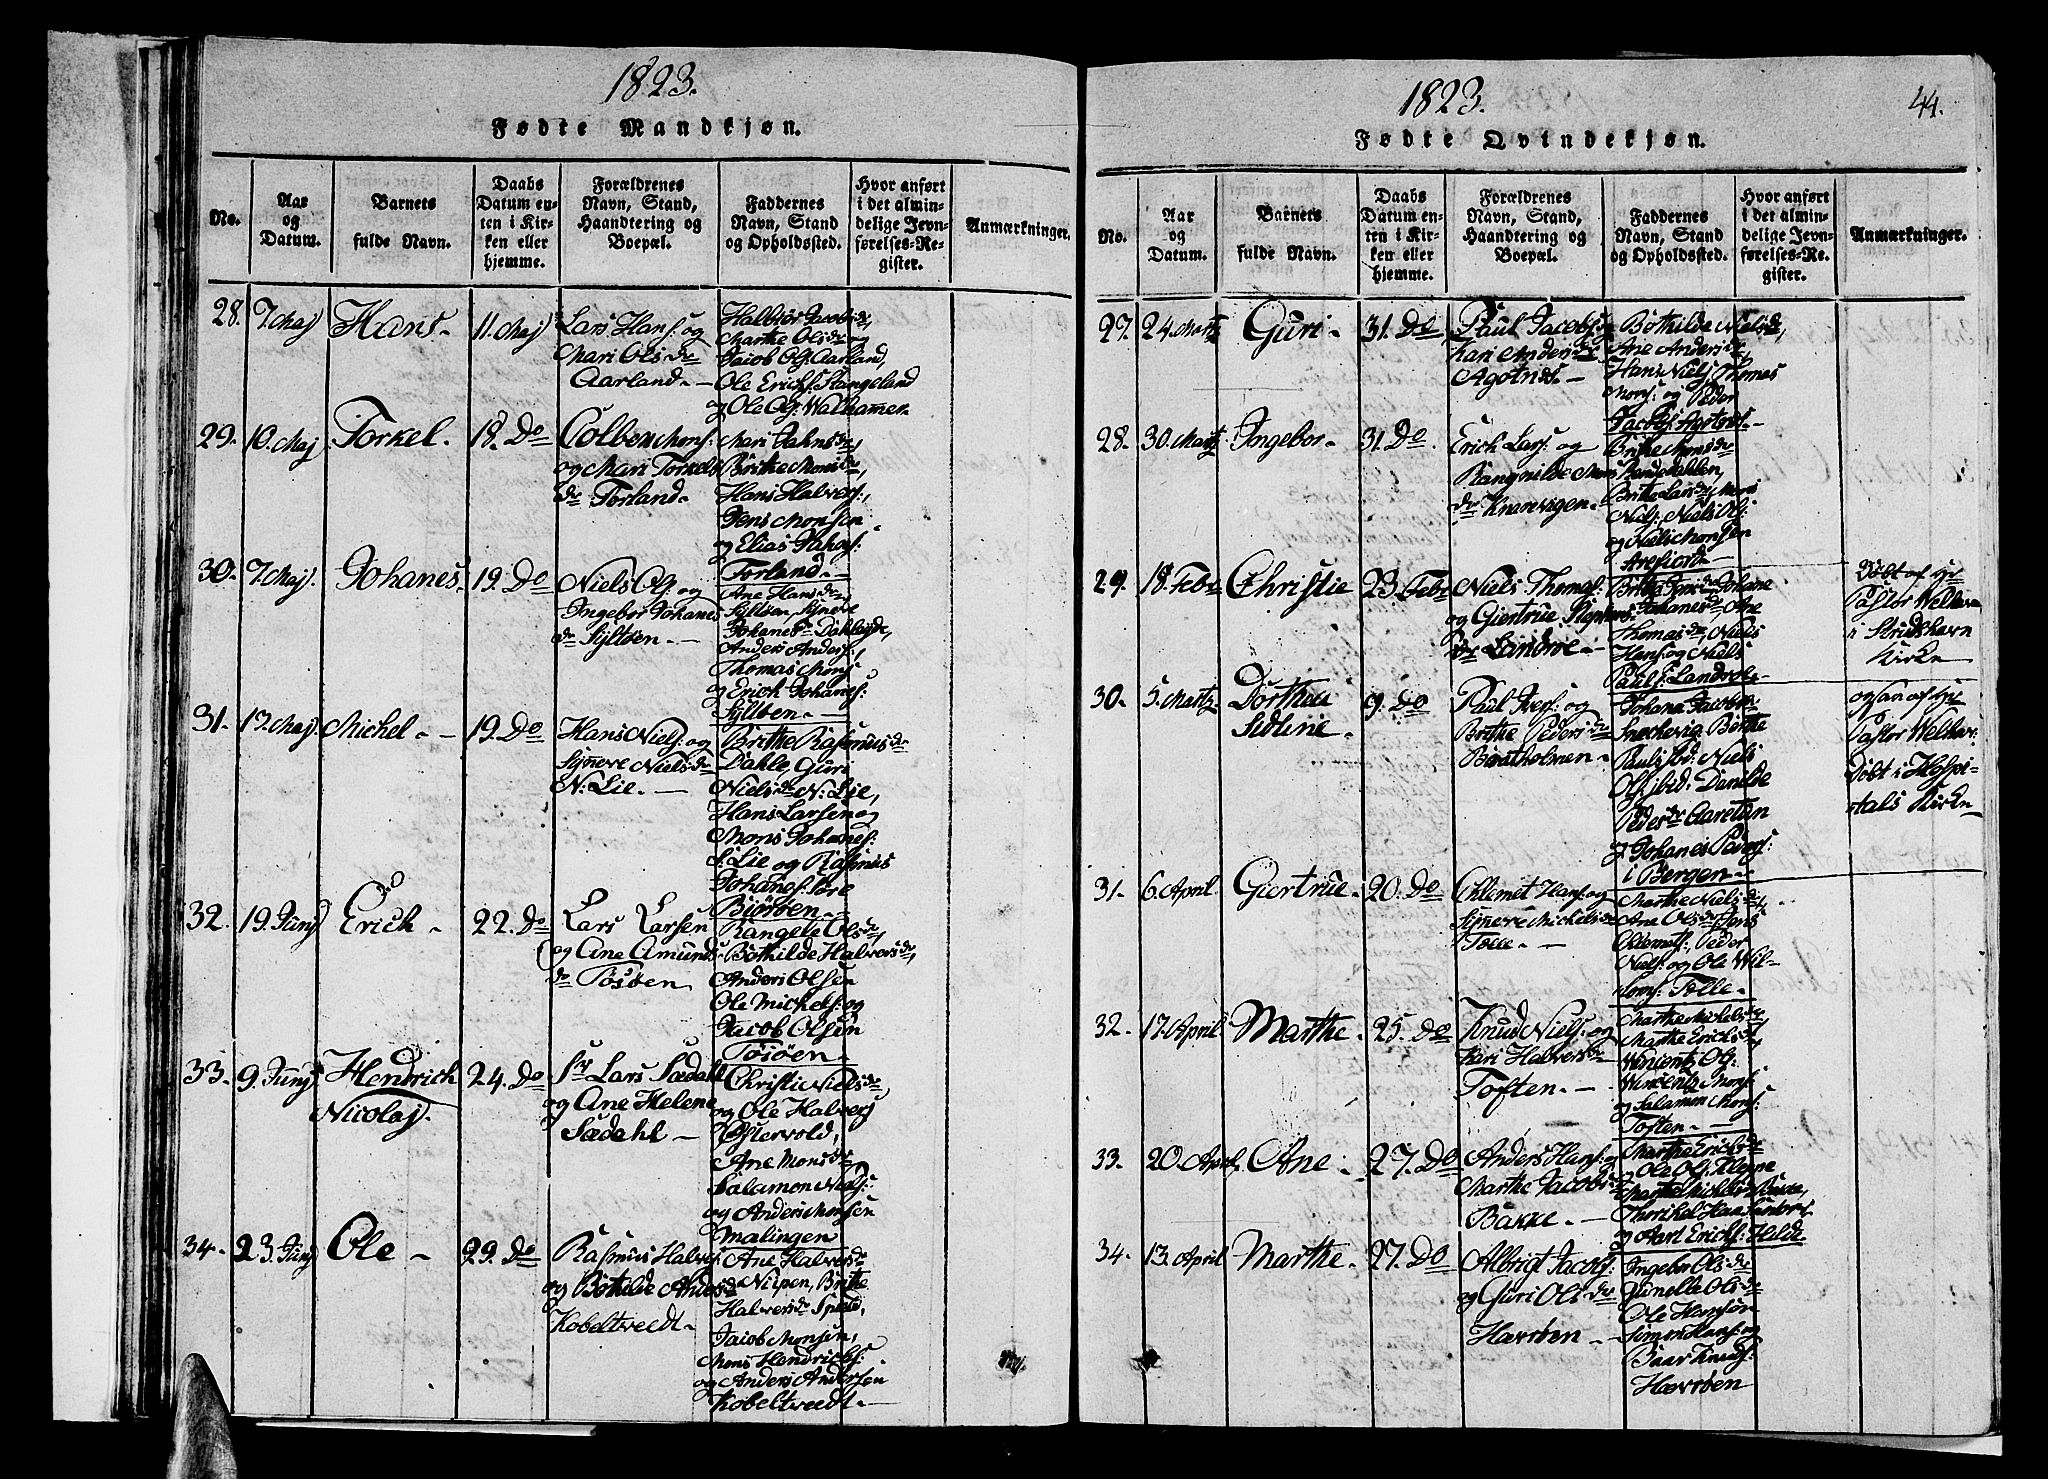 1823.
Fødte Mandkjøn.
No.
Aar
og
Datum.
Barnets
fulde Navn.
Daabs
Datum en-
ten i Kir-
ken eller
hjemme.
Forældrenes
Navn, Stand,
Haandtering og
Boepæl.
Faddernes
Navn, Stand
og Opholdssted.
Hvor anført
i det almin-
delige Jevn-
førelses-Re-
gister.
Anmærkninger.
28. 7. Maj
Hans -
11. Maj
Lars Hans: og
Mari Ols dr
Aarland. -
Halvor Jacobs dr,
Marthe Ols dr og
Jacob Ols: Aarland,
Ole Erichs: Hangeland
og Ole Ols: Walhamer.
29. 10. Maj
Torkel.
18. Do
Colben Mons:
og Mari Torkels
dr Torland. -
Mari Jahns dr,
Brithe Mons dr
Hans Halvers:,
Jens Monsen
og Elias Jahns:
Torland. -
30. 7. Maj.
Johanes.
19. Do
Niels Ols: og
Ingebor Johanes
dr Syltøen. -
Ane Hans dr,
Syltøen, Syneve
Johanes dr Dahleyde,
Anders Anders:,
Thomas Mons:
og Erich Johanes:
Syltøen. -
31. 17. Maj
Michel. -
19. Do
Hans Niels: og
Synneve Niels dr
N: Lie. -
Brithe Rasmus dr
Dahle, Guri
Niels dr N: Lie,
Hans Larsen og
Mons Johanes:
S: Lie og Rasmus
Johanes: Tøre
Biørøen. -
32. 19. Junj
Erich -
22. Do
Lars Larsen
og Ane Amunds
dr Tøsøen
Rangele Ols dr,
Bothilde Halvers dr,
Anders Olsen
Ole Mickels: og
Jacob Olsen
Tøsøen -
33. 9. Junj
Hendrich
Nicolaj.
24. Do
Sr Lars Sædahl
og Ane Helene
Sædahl -
Christi Niels dr
og Ole Halvers
Østervold,
Ane Mons dr
Salamon Niels:
og Anders Monsen
Malingen
34. 23. Junj
Ole -
29. Do
Rasmus Halvers
og Bothilde Anders dr
Kobeltvedt. -
Ane Halvers dr
Nipen, Brithe
Halvers dr Speto,
Jacob Monsen,
Mons Hendrichs:
og Anders Andersen
Kobeltvedt -
1823.
44.
Fødte Qvindekjøn.
No.
Aar
og
Datum.
Barnets
fulde Navn.
Daabs
Datum en-
ten i Kir-
ken eller
hjemme.
Forældrenes
Navn, Stand,
Haandtering og
Boepæl.
Faddernes
Navn, Stand
og Opholdsted.
Hvor anført
i det almin-
delige Jevn-
førelses-Re-
gister.
Anmærkninger.
27. 24. Martz
Guri -
31. Do
Paul Jacobs: og
Kari Anders dr
Agotnes. -
Bothilde Niels dr,
Ane Anders dr,
Hans Niels: Thomas
Mons: og Peder
Jacobs: Agotnes. -
28. 30. Martz
Ingebor -
31. Do.
Erich Lars: og
Rangnilde Mons
dr Knarrvigen. -
Brithe Mons dr
Brithe Lars dr, Mons
Niels:, Niels Ols:
og Niels Monsen
Arefiord -
29. 18. Febr
Christie
23. Febr
Niels Thomas:
og Giertrue
dr Landroe -
Johane
Johanes dr, Ane
Thomas dr, Niels
Hans: og Niels
Pauls: Landroe -
Døbt af Hr
Pastor Welhaven
i Strudshavn
Kirke
30. 5. Martz
Dorthea
Siline.
9. Do
Paul Ivers: og
Brithe Peders dr
Bratholmen -
Johana Jacobsen
Snechevig, Berthe
Pauls: ibid: Niels
Ols: ibid: Danelde
Peders dr Aaretun
og Johanes Peders:
i Bergen -
ogsaa af Hr
Pastor Welhav:
døbt i Hospi-
tals Kirke
31. 6. April.
Giertrue.
20. Do
Chlemet Hans: og
Synnere Michels dr
Tolle -
Marthe Niels dr,
Ane Ols dr, Jens
Chlemets:, Peder
Niels: og Ole Wil-
loms: Tolle. -
32. 17. April
Marthe.
25. Do
Knud Niels: og
Kari Halvers dr
Toften. -
Marthe Michels dr
Marthe Erichs dr,
Wincents Ols:
Wincents Mons:
og Salamon Mons:
Toften. -
33. 20. April
Ane -
27. Do
Anders Hans: og
Marthe Jacobs dr
Bakke. -
Marthe Erichs dr
og Ole Ols: Kleppe
Thorkel Hans:
og Aart Erichs: Hilde
34. 13. April
Marthe.
27. Do
Albrigt Jacobs:
og Guri Ols dr
Hævrøen -
Ingebor Ols dr
Gunelle Ols dr
Ole Hansøn
Simon Hans: og
Baar Knuds:
Hævrøen